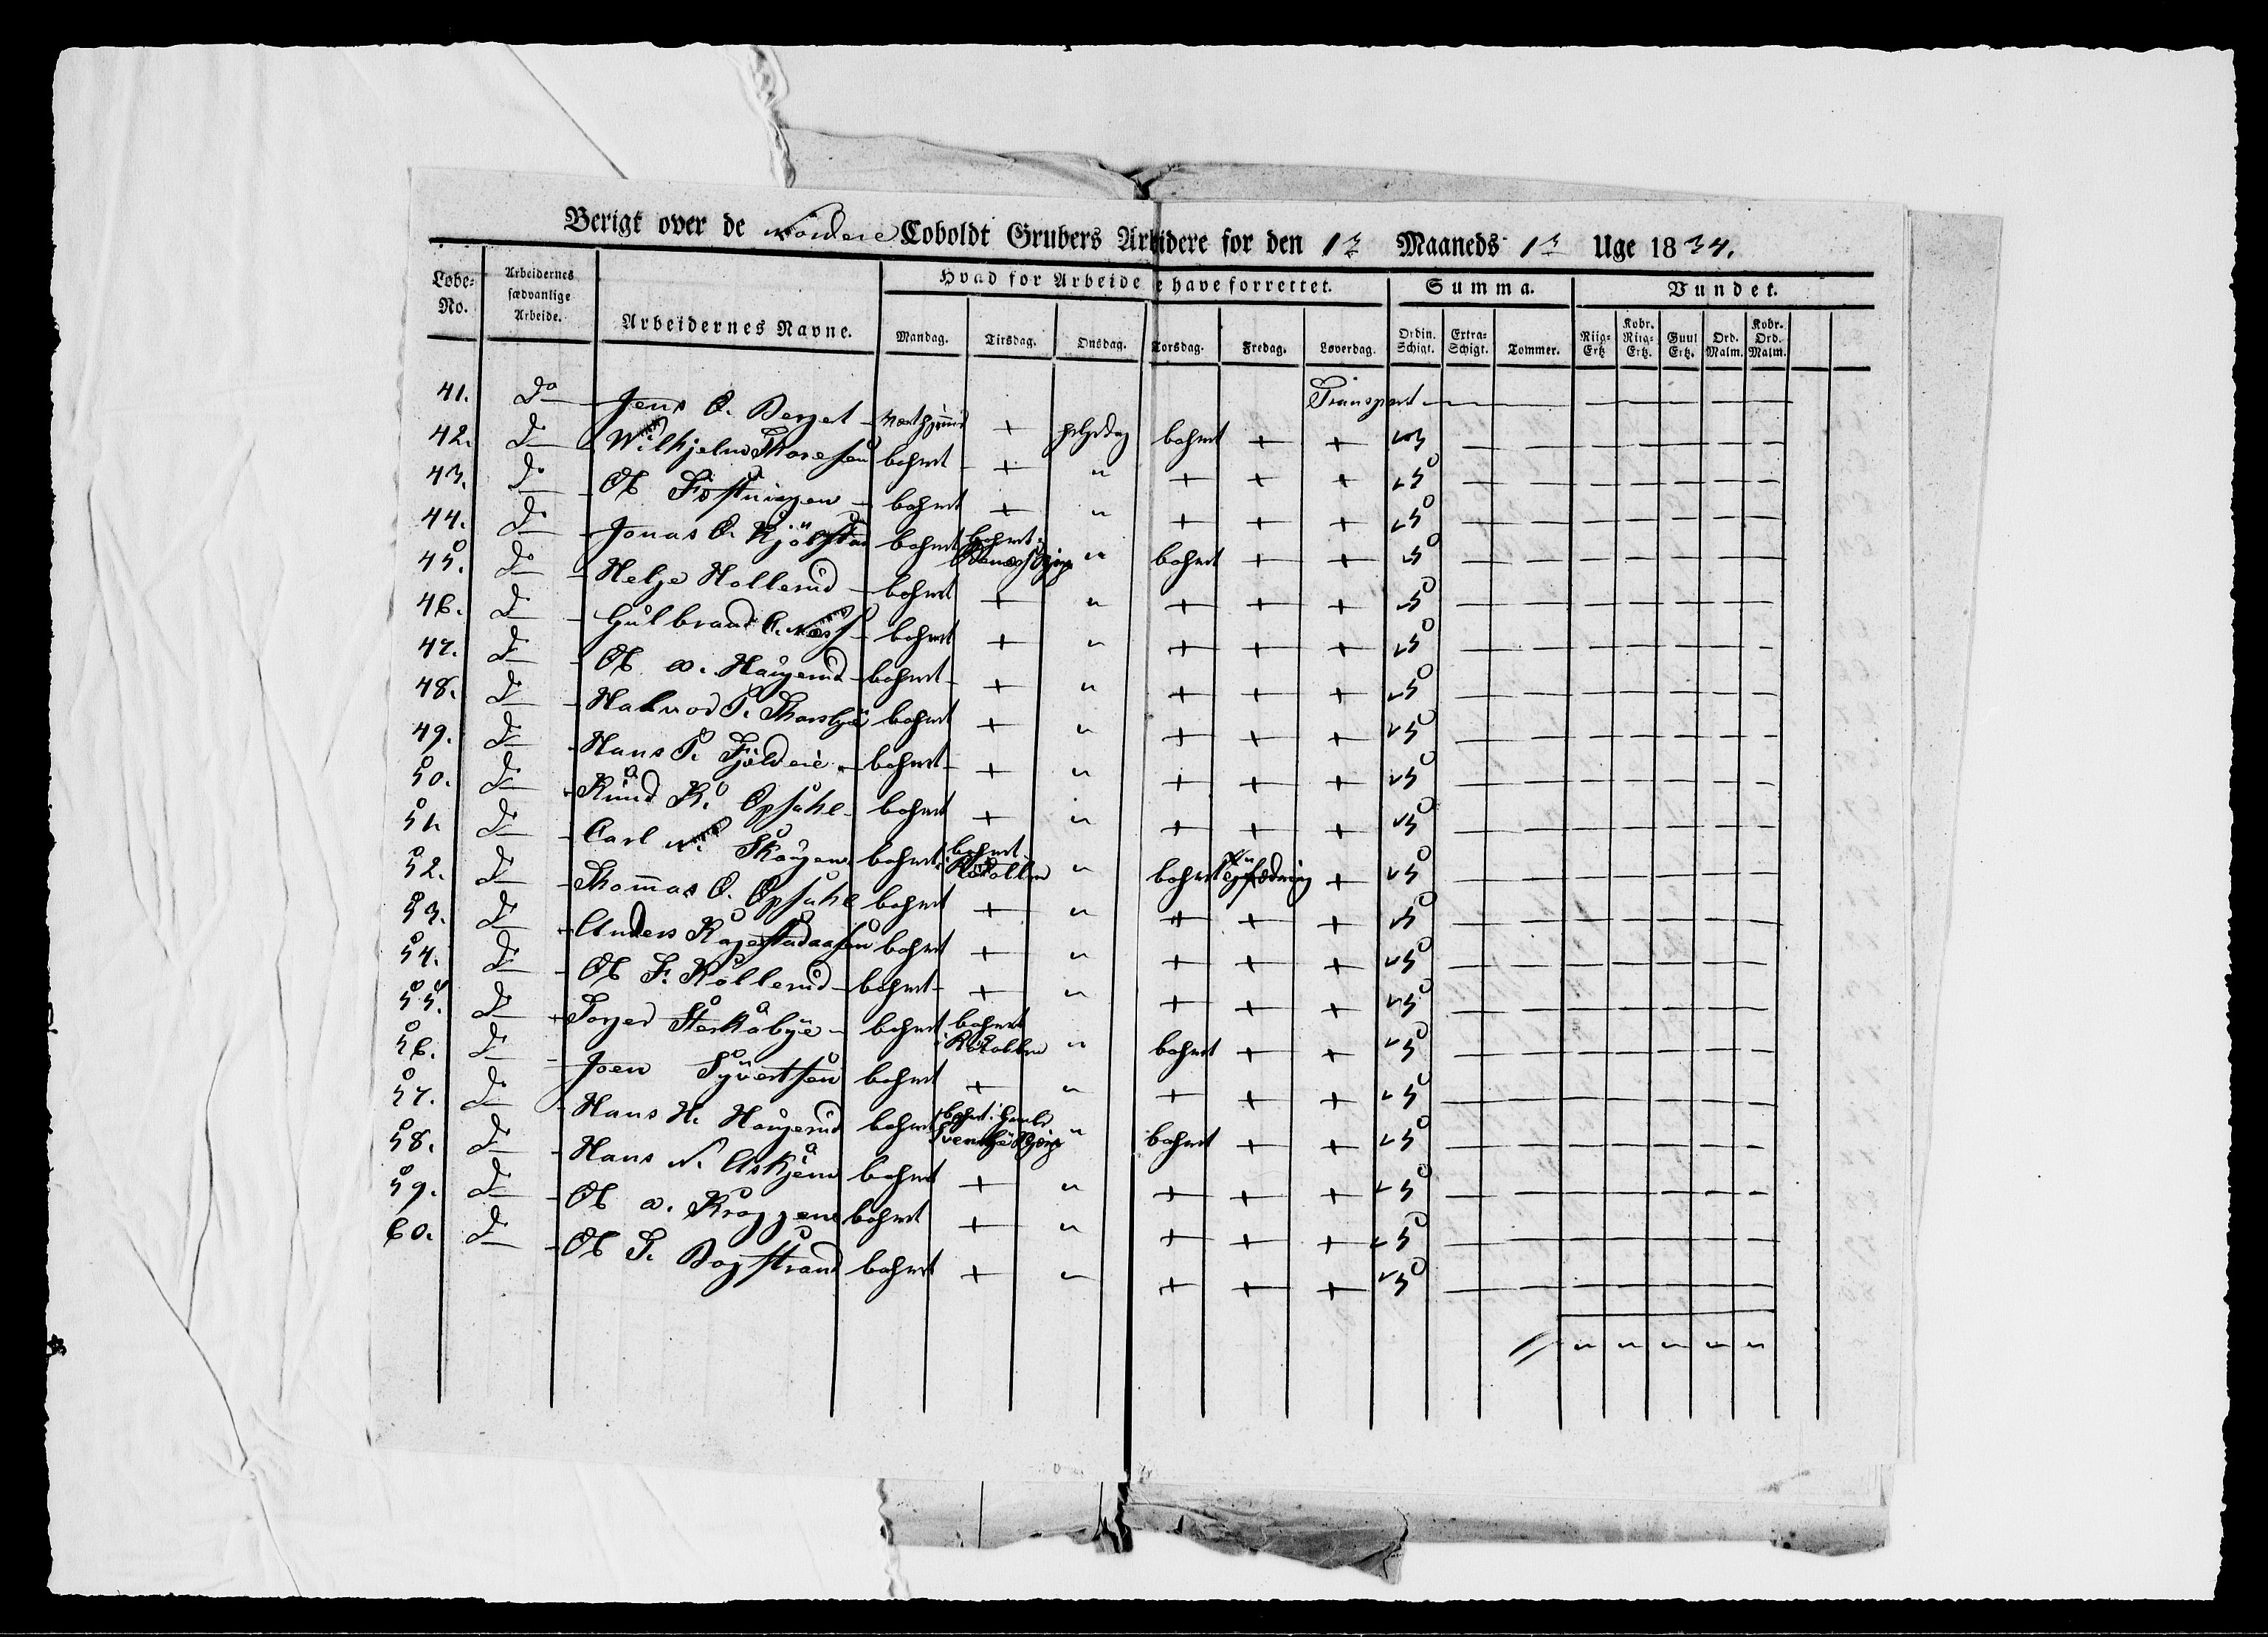 Berigt over de Nordere Coboldt Grubers Arbeidere for den 1ste Maaneds 1ste Uge 1834.
Løbe-No. Arbeidernes sædvanlige Arbeide. Arbeidernes Navne. Hvad for Arbeide de have forrettet. Summa. Vundet.
Mandag. Tirsdag. Onsdag. Torsdag. Fredag. Løverdag. Ordin. Schigt. Extra-Schigt. Tommer. Riig-Ertz Kobr. Riig-Ertz. Guul Ertz. Ord. Malm. Kobr. Ord. Malm.
Transport — — — — — — — —
41. Do Jens O. Berget + helgedag bohret + + 5 — — — — — — —
42. Do Wilhjelm Thoresen bohret + " + + + 5 — — — — — — —
43. Do Ole Fostningen bohret + " + + + 5 — — — — — — —
44. Do Jonas O. Kjölstad bohret bohret " bohret + + 5 — — — — — — —
45. Do Helge Hollerud bohret + " + + + 5 — — — — — — —
46. Do Gulbrand A. Næss bohret + " + + + 5 — — — — — — —
47. Do Ole A. Haugerud bohret + " + + + 5 — — — — — — —
48. Do Halvor P. Thorsbye bohret + " + + + 5 — — — — — — —
49. Do Hans P. Fjeldeie bohret + " + + + 5 — — — — — — —
50. Do Knud K. Opsahl bohret + " + + + 5 — — — — — — —
51. Do Carl N. Skougen bohret bohret i " bohret + 5 — — — — — — —
52. Do Thomas O. Opsahl bohret + " + + + 5 — — — — — — —
53. Do Anders bohret + " + + + 5 — — — — — — —
54. Do Ole F. Kollerud bohret + " + + + 5 — — — — — — —
55. Do Torger Sterkebye bohret bohret i " bohret + + 5 — — — — — — —
56. Do Joen Syvertsen bohret + " + + + 5 — — — — — — —
57. Do Hans H. Haugerud bohret bohret i " bohret + + 5 — — — — — — —
58. Do Hans N. Askjem bohret + " + + + 5 — — — — — — —
59. Do Ole A. Kroggen bohret + " + + + 5 — — — — — — —
60. Do Ole T. Bogstrand bohret + " + + + 5 — — — — — — —
" " " " "